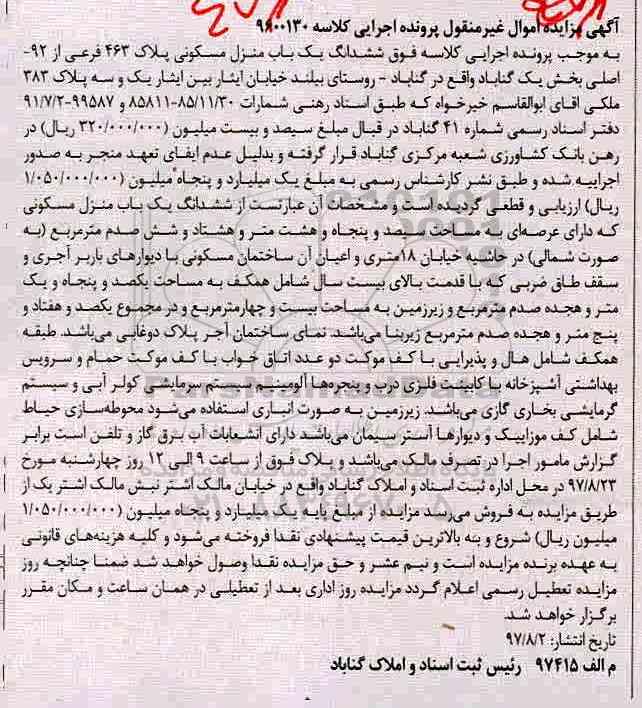 آگهی مزایده اموال غیرمنقول پرونده اجرایی کلاسه ۹۶۰۰۱۳۰
به موجب پرونده اجرایی کلاسه فوق ششدانگ یک باب منزل مسکونی پلاک ۴۶۳ فرعی از ۹۲-
اصلی بخش یک گناباد واقع در گناباد - روستای بیلند خیابان ایثار بین ایثار یک و سه پلاک ۳۸۳
ملکی اقای ابوالقاسم خیرخواه که طبق اسناد رهنی شمارات ۸۵/۱۱/۳۰-۸۵۸۱۱ و ۹۹۵۸۷-۹۱/۷/۲
دفتر اسناد رسمی شماره ۴۱ گناباد در قبال مبلغ سیصد و بیست میلیون (۳۲۰/۰۰۰/۰۰۰ ریال) در
رهن بانک کشاورزی شعبه مرکزی گناباد قرار گرفته و بدلیل عدم ایفای تعهد منجر به صدور
اجراییه شده و طبق نشر کارشناس رسمی به مبلغ یک میلیارد و پنجاه میلیون (۱/۰۵۰/۰۰۰/۰۰۰
ریال) ارزیابی و قطعی گردیده است و مشخصات آن عبارتست از ششدانگ یک باب منزل مسکونی
که دارای عرصه‌ای به مساحت سیصد و پنجاه و هشت متر و هشتاد و شش صدم مترمربع (به
صورت شمالی) در حاشیه خیابان ۱۸متری و اعیان آن ساختمان مسکونی با دیوارهای باربر آجری و
سقف طاق ضربی که با قدمت بالای بیست سال شامل همکف به مساحت یکصد و پنجاه و یک
متر و هجده صدم مترمربع و زیرزمین به مساحت بیست و چهارمترمربع و در مجموع یکصد و هفتاد و
پنج متر و هجده صدم مترمربع زیربنا می‌باشد. نمای ساختمان آجر پلاک دوغابی می‌باشد. طبقه
همکف شامل هال و پذیرایی با کف موکت دو عدد اتاق خواب با کف موکت حمام و سرویس
بهداشتی آشپزخانه با کابینت فلزی درب و پنجره‌ها آلومینم سیستم سرمایشی کولر آبی و سیستم
گرمایشی بخاری گازی می‌باشد. زیرزمین به صورت انباری استفاده می‌شود محوطه‌سازی حیاط
شامل کف موزاییک و دیوارها آستر سیمان می‌باشد دارای انشعابات آب برق گاز و تلفن است برابر
گزارش مامور اجرا در تصرف مالک می‌باشد و پلاک فوق از ساعت ۹ الی ۱۲ روز چهارشنبه مورخ
۹۷/۸/۲۳ در محل اداره ثبت اسناد و املاک گناباد واقع در خیابان مالک اشتر نبش مالک اشتر یک از
طریق مزایده به فروش می‌رسد مزایده از مبلغ پایه یک میلیارد و پنجاه میلیون (۱/۰۵۰/۰۰۰/۰۰۰
میلیون ریال) شروع و به بالاترین قیمت پیشنهادی نقدا فروخته می‌شود و کلیه هزینه‌های قانونی
به عهده برنده مزایده است و نیم عشر و حق مزایده نقدا وصول خواهد شد ضمنا چنانچه روز
مزایده تعطیل رسمی اعلام گردد مزایده روز اداری بعد از تعطیلی در همان ساعت و مکان مقرر
برگزار خواهد شد.
تاریخ انتشار: ۹۷/۸/۲
م الف ۹۷۴۱۵ رئیس ثبت اسناد و املاک گناباد